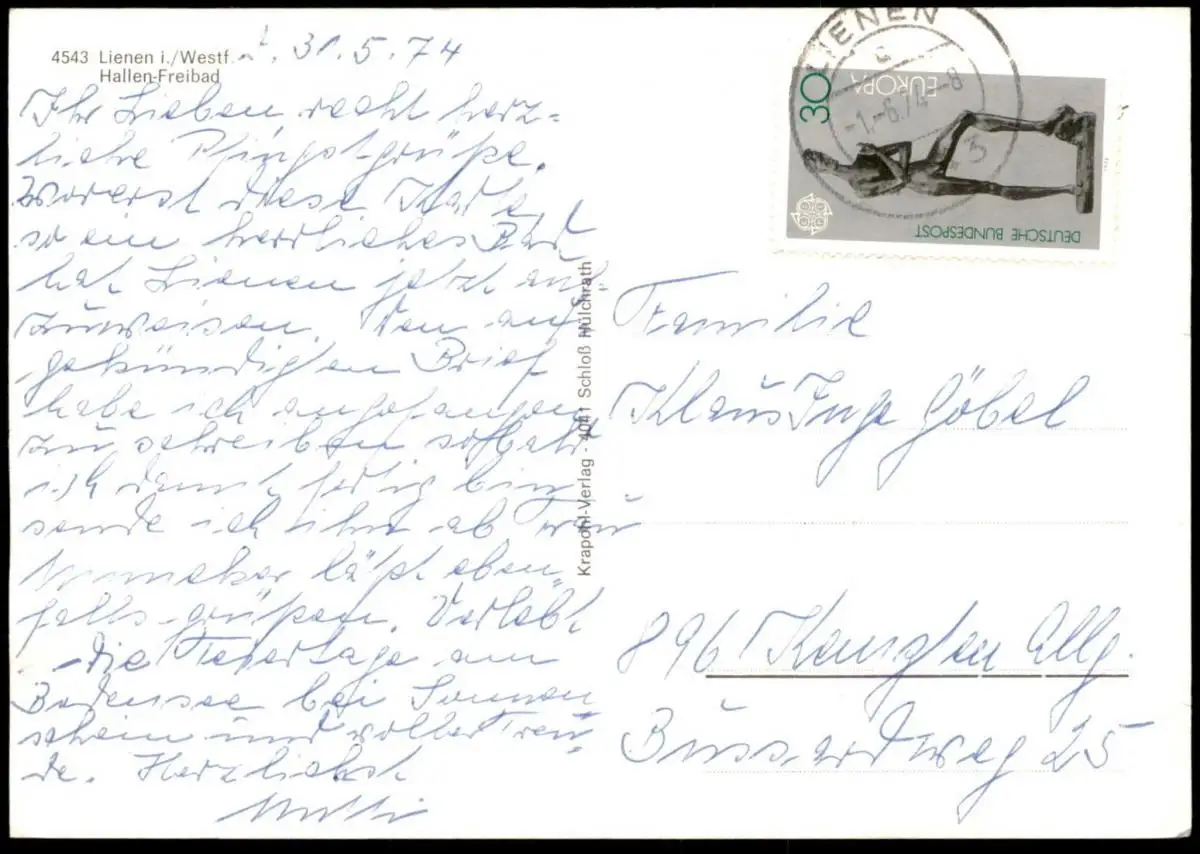 4543 Lienen i./Westf.
Hallen-Freibad
L. 31.5.74
Ihr Lieben, recht herz-
liche Pfingstgrüße.
Vorerst diese Karte,
so ein herrliches Bad
hat Lienen jetzt auf-
zuweisen. Den an-
gekündigten Brief
habe ich angefangen
zu schreiben sobald
ich damit fertig bin
sende ich ihn ab Frau
läßt eben-
falls grüßen. Verlebt
die Feiertage am
Bodensee bei Sonnen
schein und voller Freu-
de. Herzlichst
Mutti
Krapohl-Verlag - 4041 Schloß Hülchrath
LIENEN
-1.-6.74-8
3
30
EUROPA
DEUTSCHE BUNDESPOST
Familie
Klaus Inge Göbel
896 Kempten Allg.
Bussardweg 25